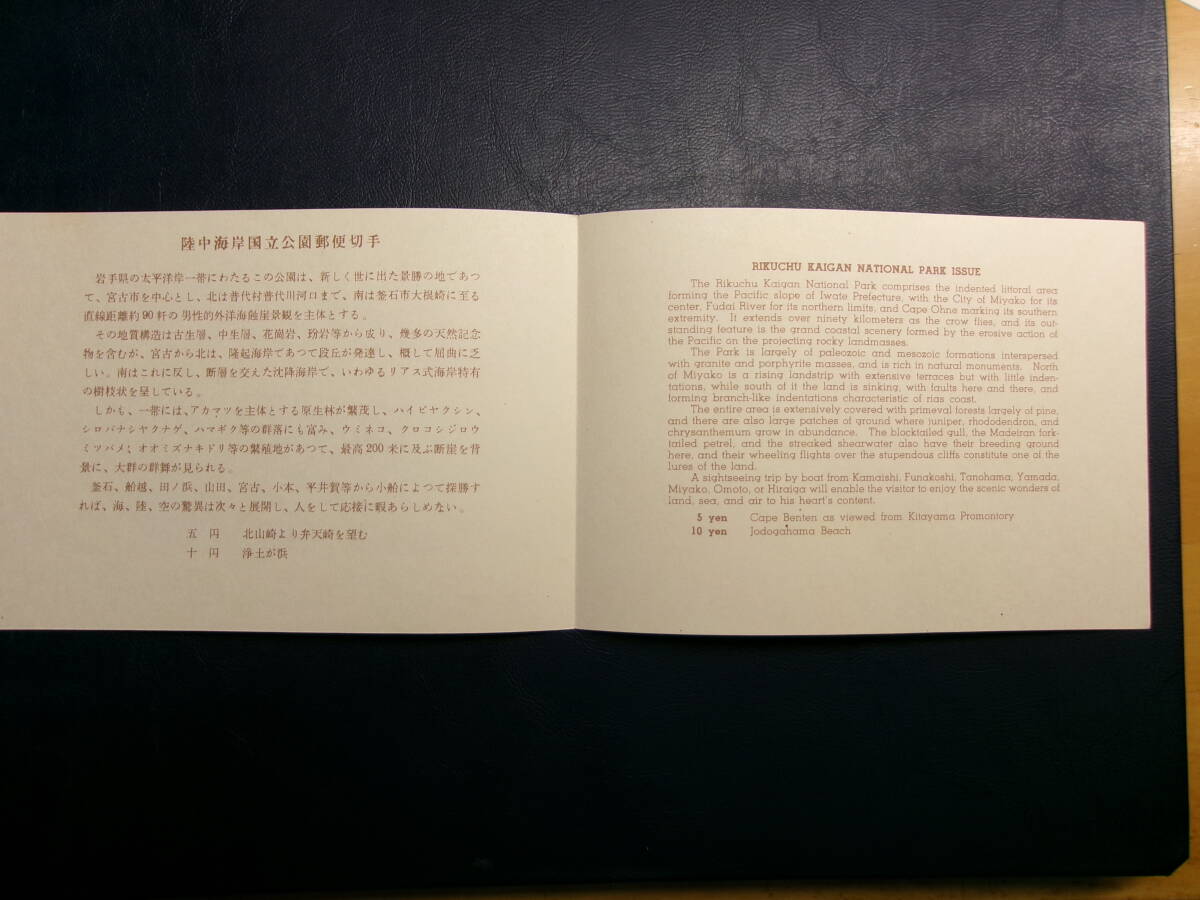 陸中海岸国立公園郵便切手
岩手県の太平洋岸一帯にわたるこの公園は、新しく世に出た景勝の地であつ
て、宮古市を中心とし、北は普代村普代川河口まで、南は釜石市大根崎に至る
直線距離約90粁の男性的外洋海蝕崖景観を主体とする。
その地質構造は古生層、中生層、花崗岩、玢岩等から成り、幾多の天然記念
物を含むが、宮古から北は、隆起海岸であつて段丘が発達し、概して屈曲に乏
しい。南はこれに反し、断層を交えた沈降海岸で、いわゆるリアス式海岸特有
の樹枝状を呈している。
しかも、一帯には、アカマツを主体とする原生林が繁茂し、ハイビヤクシン、
シロバナシヤクナゲ、ハマギク等の群落にも富み、ウミネコ、クロコシジロウ
ミツバメ、オオミズナキドリ等の繁殖地があつて、最高200米に及ぶ断崖を背
景に、大群の群舞が見られる。
釜石、船越、田ノ浜、山田、宮古、小本、平井賀等から小船によつて探勝す
れば、海、陸、空の驚異は次々と展開し、人をして応接に暇あらしめない。
五円 北山崎より弁天崎を望む
十円 浄土が浜
RIKUCHU KAIGAN NATIONAL PARK ISSUE
The Rikuchu Kaigan National Park comprises the indented littoral area
forming the Pacific slope of Iwate Prefecture, with the City of Miyako for its
center, Fudai River for its northern limits, and Cape Ohne marking its southern
extremity. It extends over ninety kilometers as the crow flies, and its out-
standing feature is the grand coastal scenery formed by the erosive action of
the Pacific on the projecting rocky landmasses.
The Park is largely of paleozoic and mesozoic formations interspersed
with granite and porphyrite masses, and is rich in natural monuments. North
of Miyako is a rising landstrip with extensive terraces but with little inden-
tations, while south of it the land is sinking, with faults here and there, and
forming branch-like indentations characteristic of rias coast.
The entire area is extensively covered with primeval forests largely of pine,
and there are also large patches of ground where juniper, rhododendron, and
chrysanthemum grow in abundance. The blocktailed gull, the Madeiran fork-
tailed petrel, and the streaked shearwater also have their breeding ground
here, and their wheeling flights over the stupendous cliffs constitute one of the
lures of the land.
A sightseeing trip by boat from Kamaishi, Funakoshi, Tanohama, Yamada,
Miyako, Omoto, or Hiraiga will enable the visitor to enjoy the scenic wonders of
land, sea, and air to his heart's content.
5 yen Cape Benten as viewed from Kitayama Promontory
10 yen Jodogahama Beach